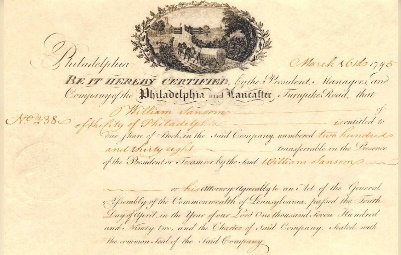 Philadelphia March 16th 1795
BE IT HEREBY CERTIFIED, by the President Managers, and
Company of the Philadelphia and Lancaster Turnpike Road, that
William Sansom of
No. 238 of the City of Philadelphia is entitled to
One Share of Stock in the said Company, numbered two hundred
and thirty eight transferrable in the Presence
of the President or Treasurer by the said William Sansom
or his Attorney Agreeably to an Act of the General
Assembly of the Commonwealth of Pennsylvania, passed the
Day of April, in the Year of our Lord One thousand Seven Hundred
and Ninety two, and the Charter of Said Company. Sealed with
the common Seal of the Said Company